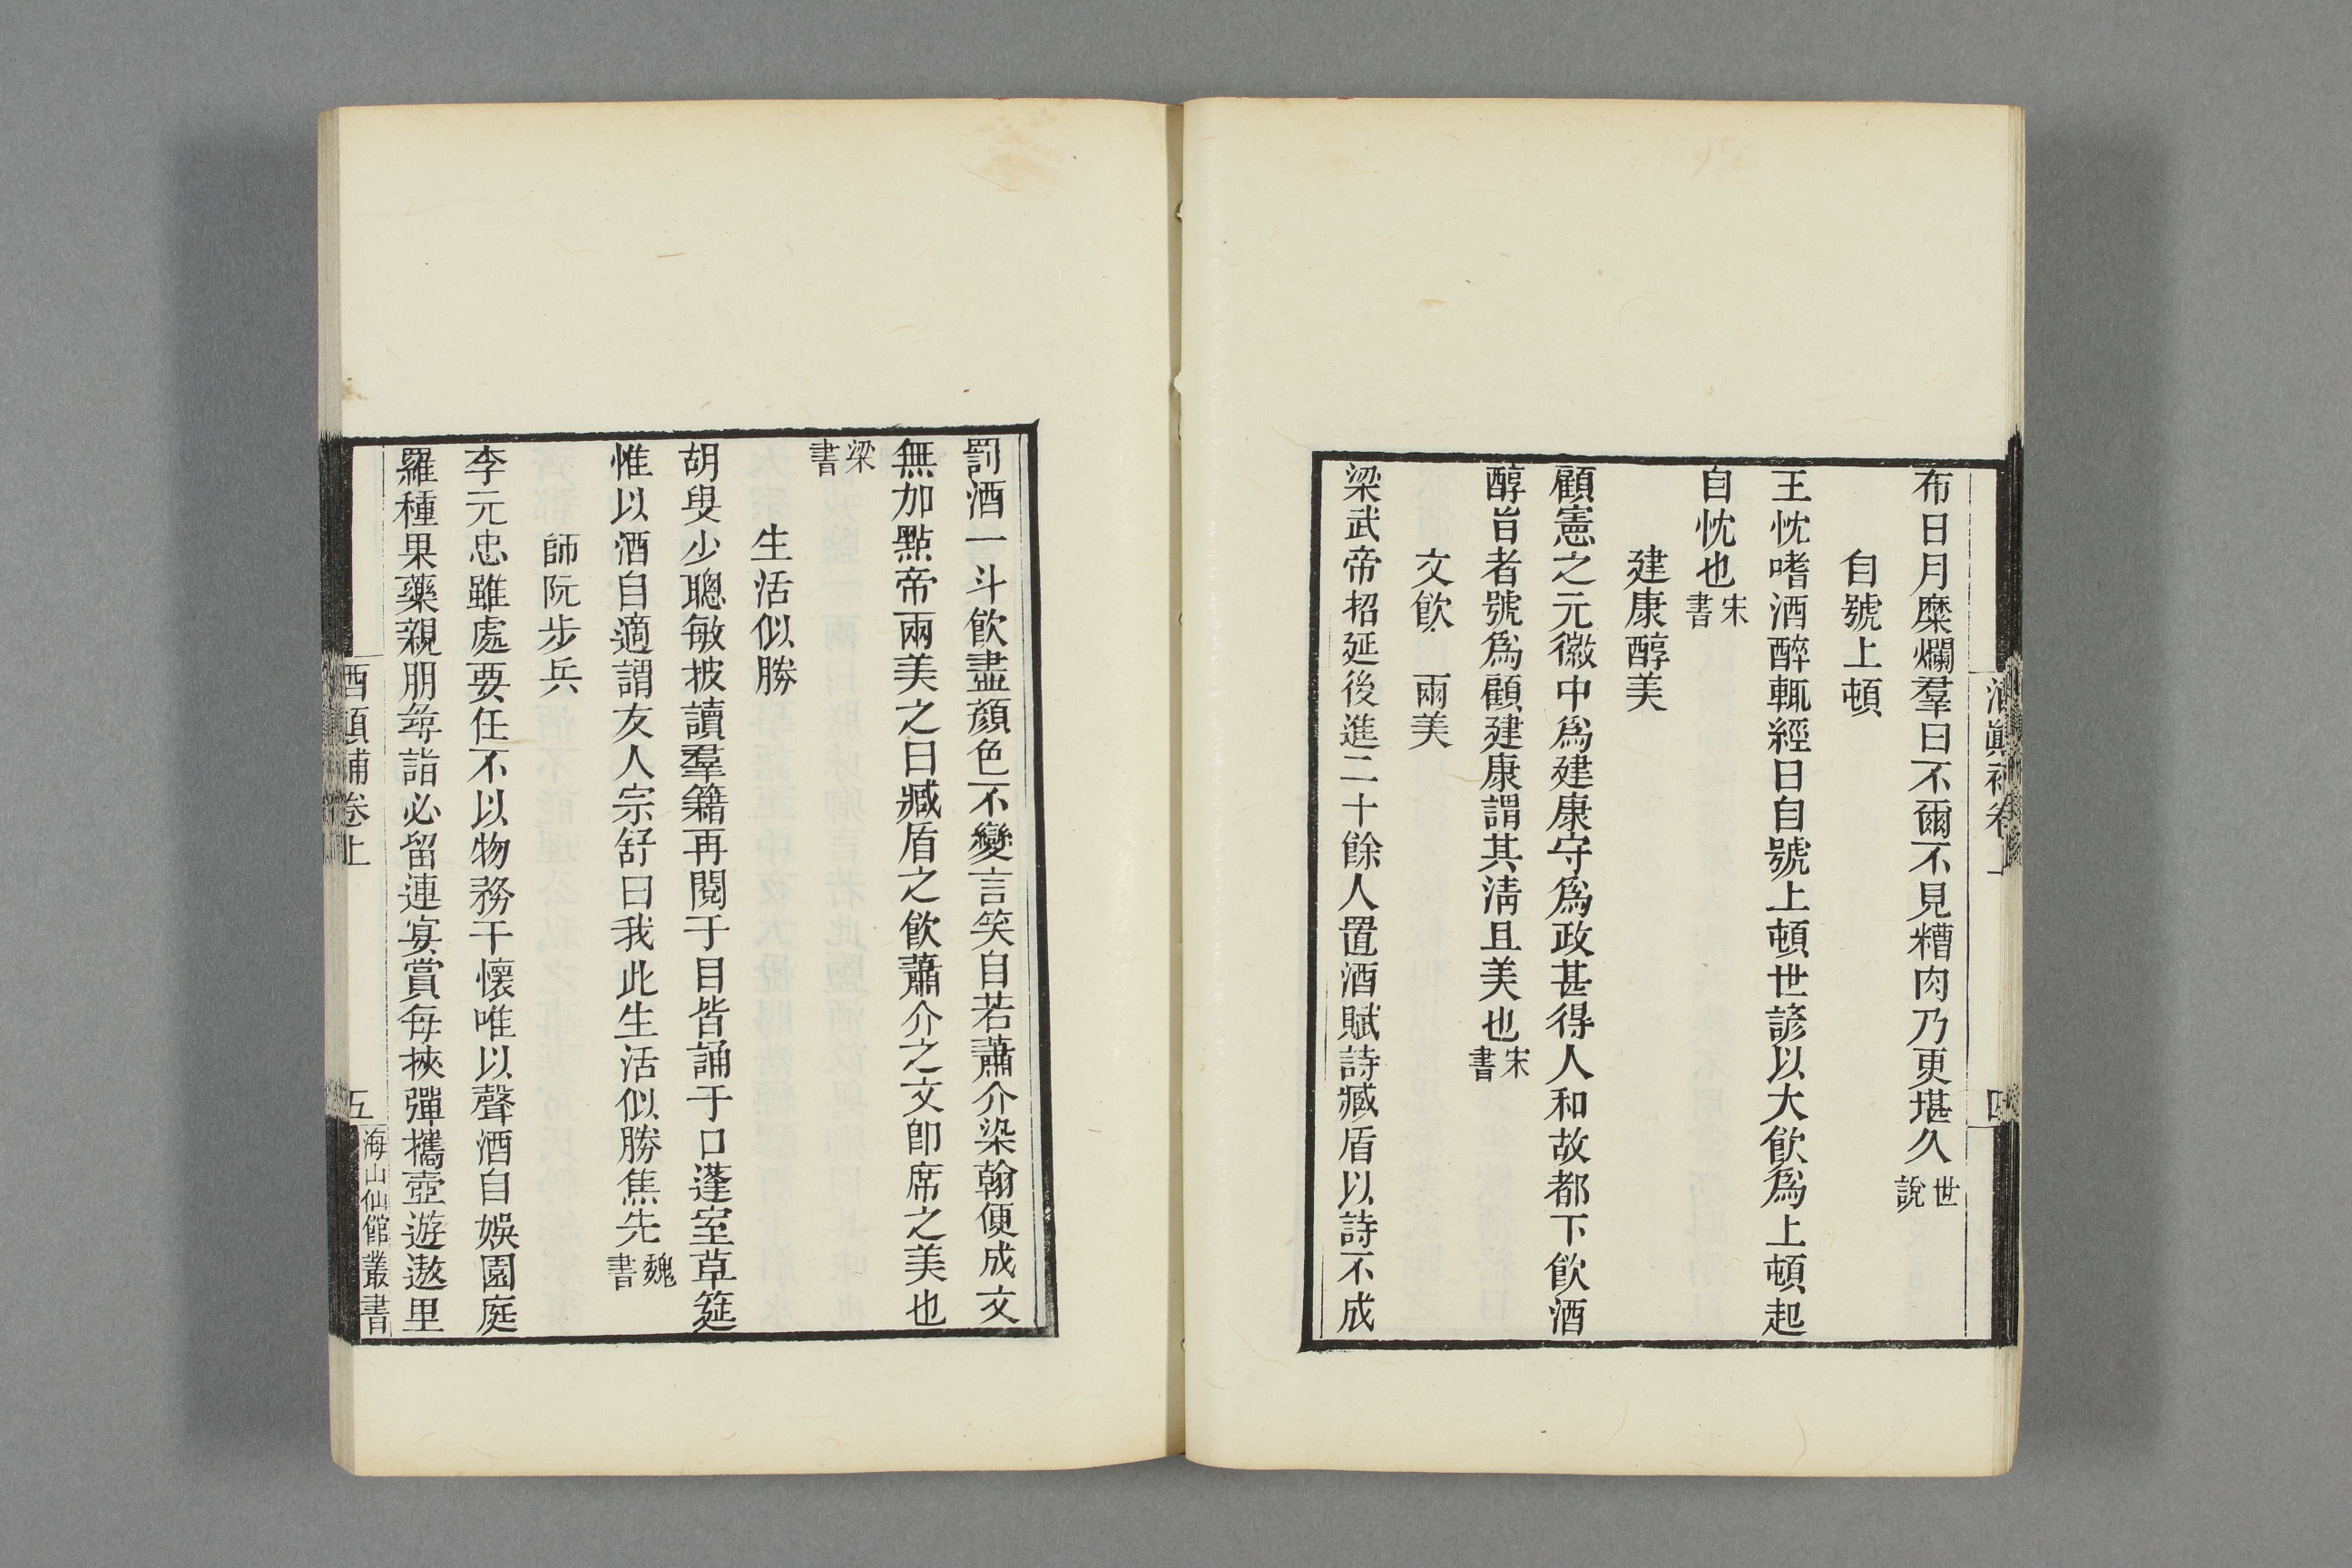 布日月糜爛羣曰不爾不見糟肉乃更堪久世說
自號上頓
王忱嗜酒醉輒經日自號上頓世諺以大飲爲上頓起
自忱也宋書
建康醇美
顧憲之元徽中爲建康守爲政甚得人和故都下飲酒
醇旨者號爲顧建康謂其淸且美也宋書
文飲　兩美
梁武帝招延後進二十餘人置酒賦詩臧盾以詩不成
罰酒一斗飲盡顏色不變言笑自若蕭介染翰便成文
無加點帝兩美之曰臧盾之飲蕭介之文卽席之美也
梁書
生活似勝
胡叟少聰敏披讀羣籍再閱于目皆誦于口蓬室草筵
惟以酒自適謂友人宗舒曰我此生活似勝焦先魏書
師阮步兵
李元忠雖處要任不以物務干懷唯以聲酒自娛園庭
羅種果藥親朋尋詣必留連宴賞每挾彈攜壺遊遨里
酒顚補卷上
五
海山仙館叢書